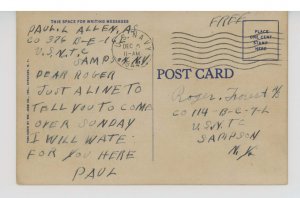 THIS SPACE FOR WRITING MESSAGES
PAUL. L ALLEN, AS
CO 376 B-E-14L
U.S.N.T.C
SAMPSON. NY.
DEAR ROGER
JUST A LINE TO
TELL YOU TO COME
OVER SUNDAY
I WILL WATE
FOR YOU HERE
PAUL
FREE
NAVY
DEC
11-AM
PLACE
ONE CENT
STAMP
HERE
POST CARD
Roger.
CO 114-B-C-7-L
U.S.N.T.C
SAMPSON
N.Y.